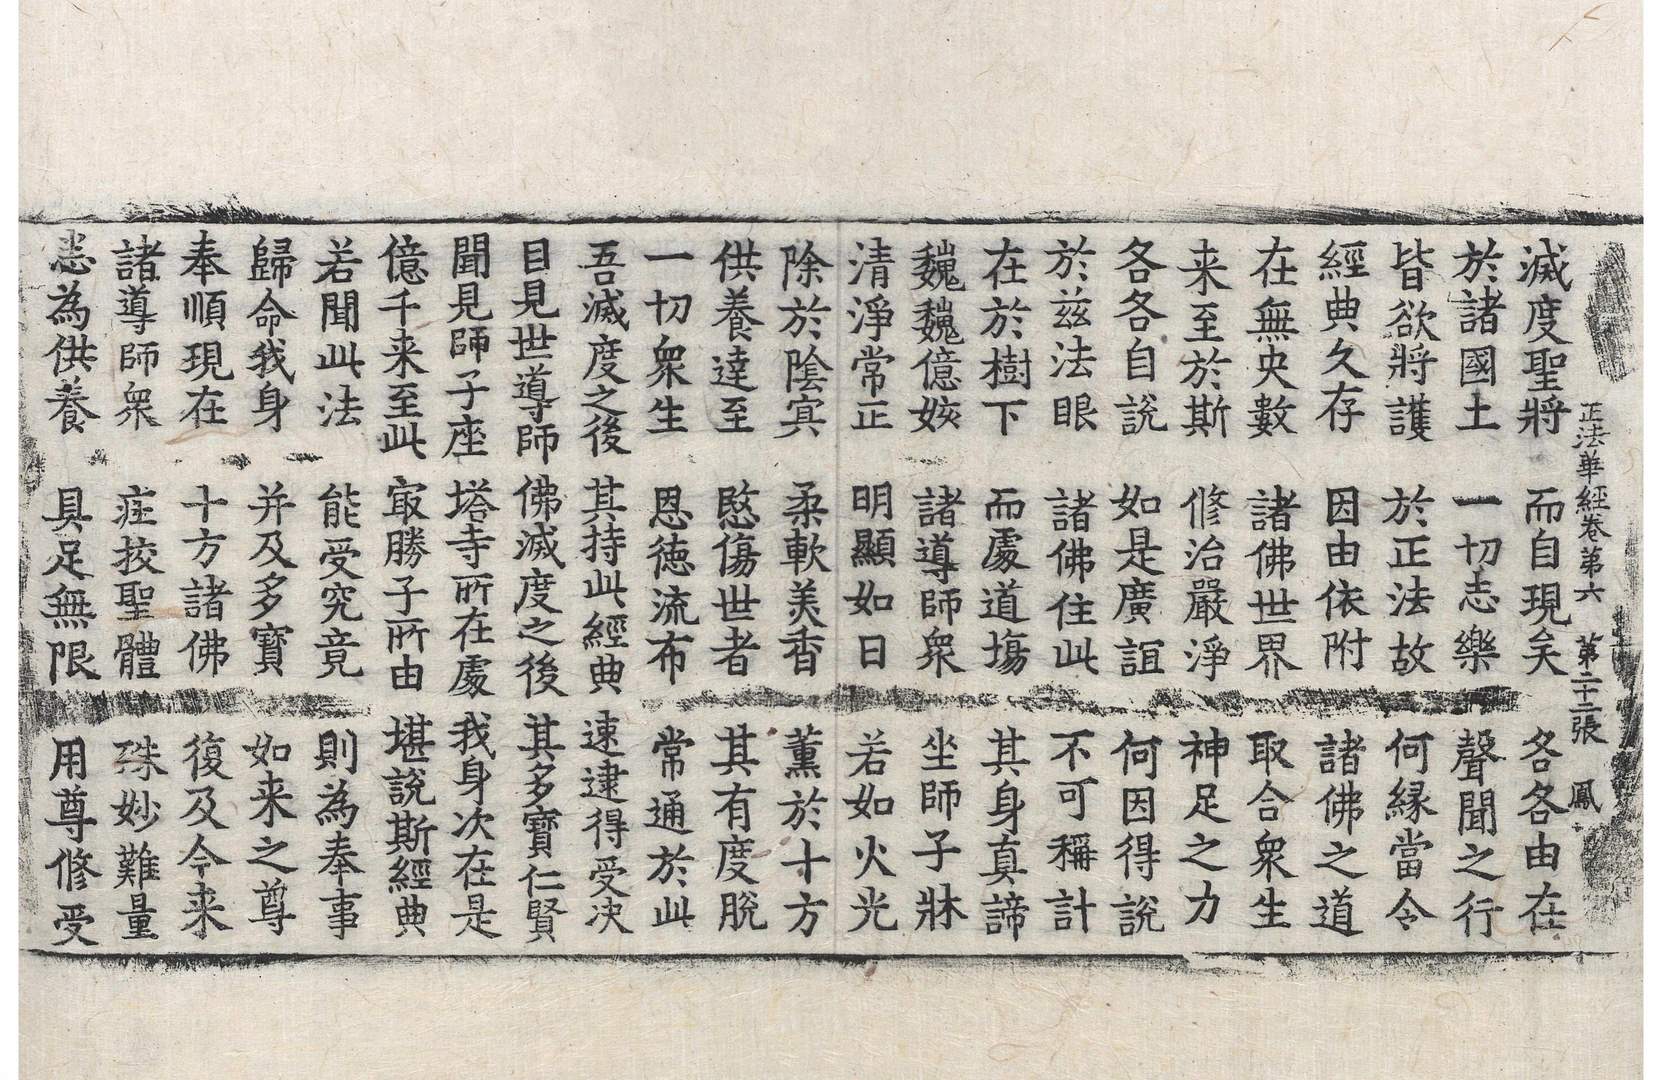 正法華經卷第六　第二十二張　鳳
滅度聖將　而自現矣　各各由在
於諸國土　一切志樂　聲聞之行
皆欲將護　於正法故　何緣當令
經典久存　因由依附　諸佛之道
在無央數　諸佛世界　取合衆生
来至於斯　修治嚴淨　神足之力
各各自說　如是廣誼　何因得說
於茲法眼　諸佛住此　不可稱計
在於樹下　而處道塲　其身真諦
巍巍億姟　諸導師衆　坐師子牀
清淨常正　明顯如日　若如火光
除於陰㝠　柔軟美香　薰於十方
供養達至　愍傷世者　其有度脫
一切衆生　恩徳流布　常通於此
吾滅度之後　其持此經典　速逮得受决
目見世導師　佛滅度之後　其多寶仁賢
聞見師子座　塔寺所在處　我身次在是
億千来至此　㝡勝子所由　堪說斯經典
若聞此法　能受究竟　則為奉事
歸命我身　并及多寳　如来之尊
奉順現在　十方諸佛　復及今来
諸導師衆　莊挍聖體　殊妙難量
悉為供養　具足無限　用尊修受